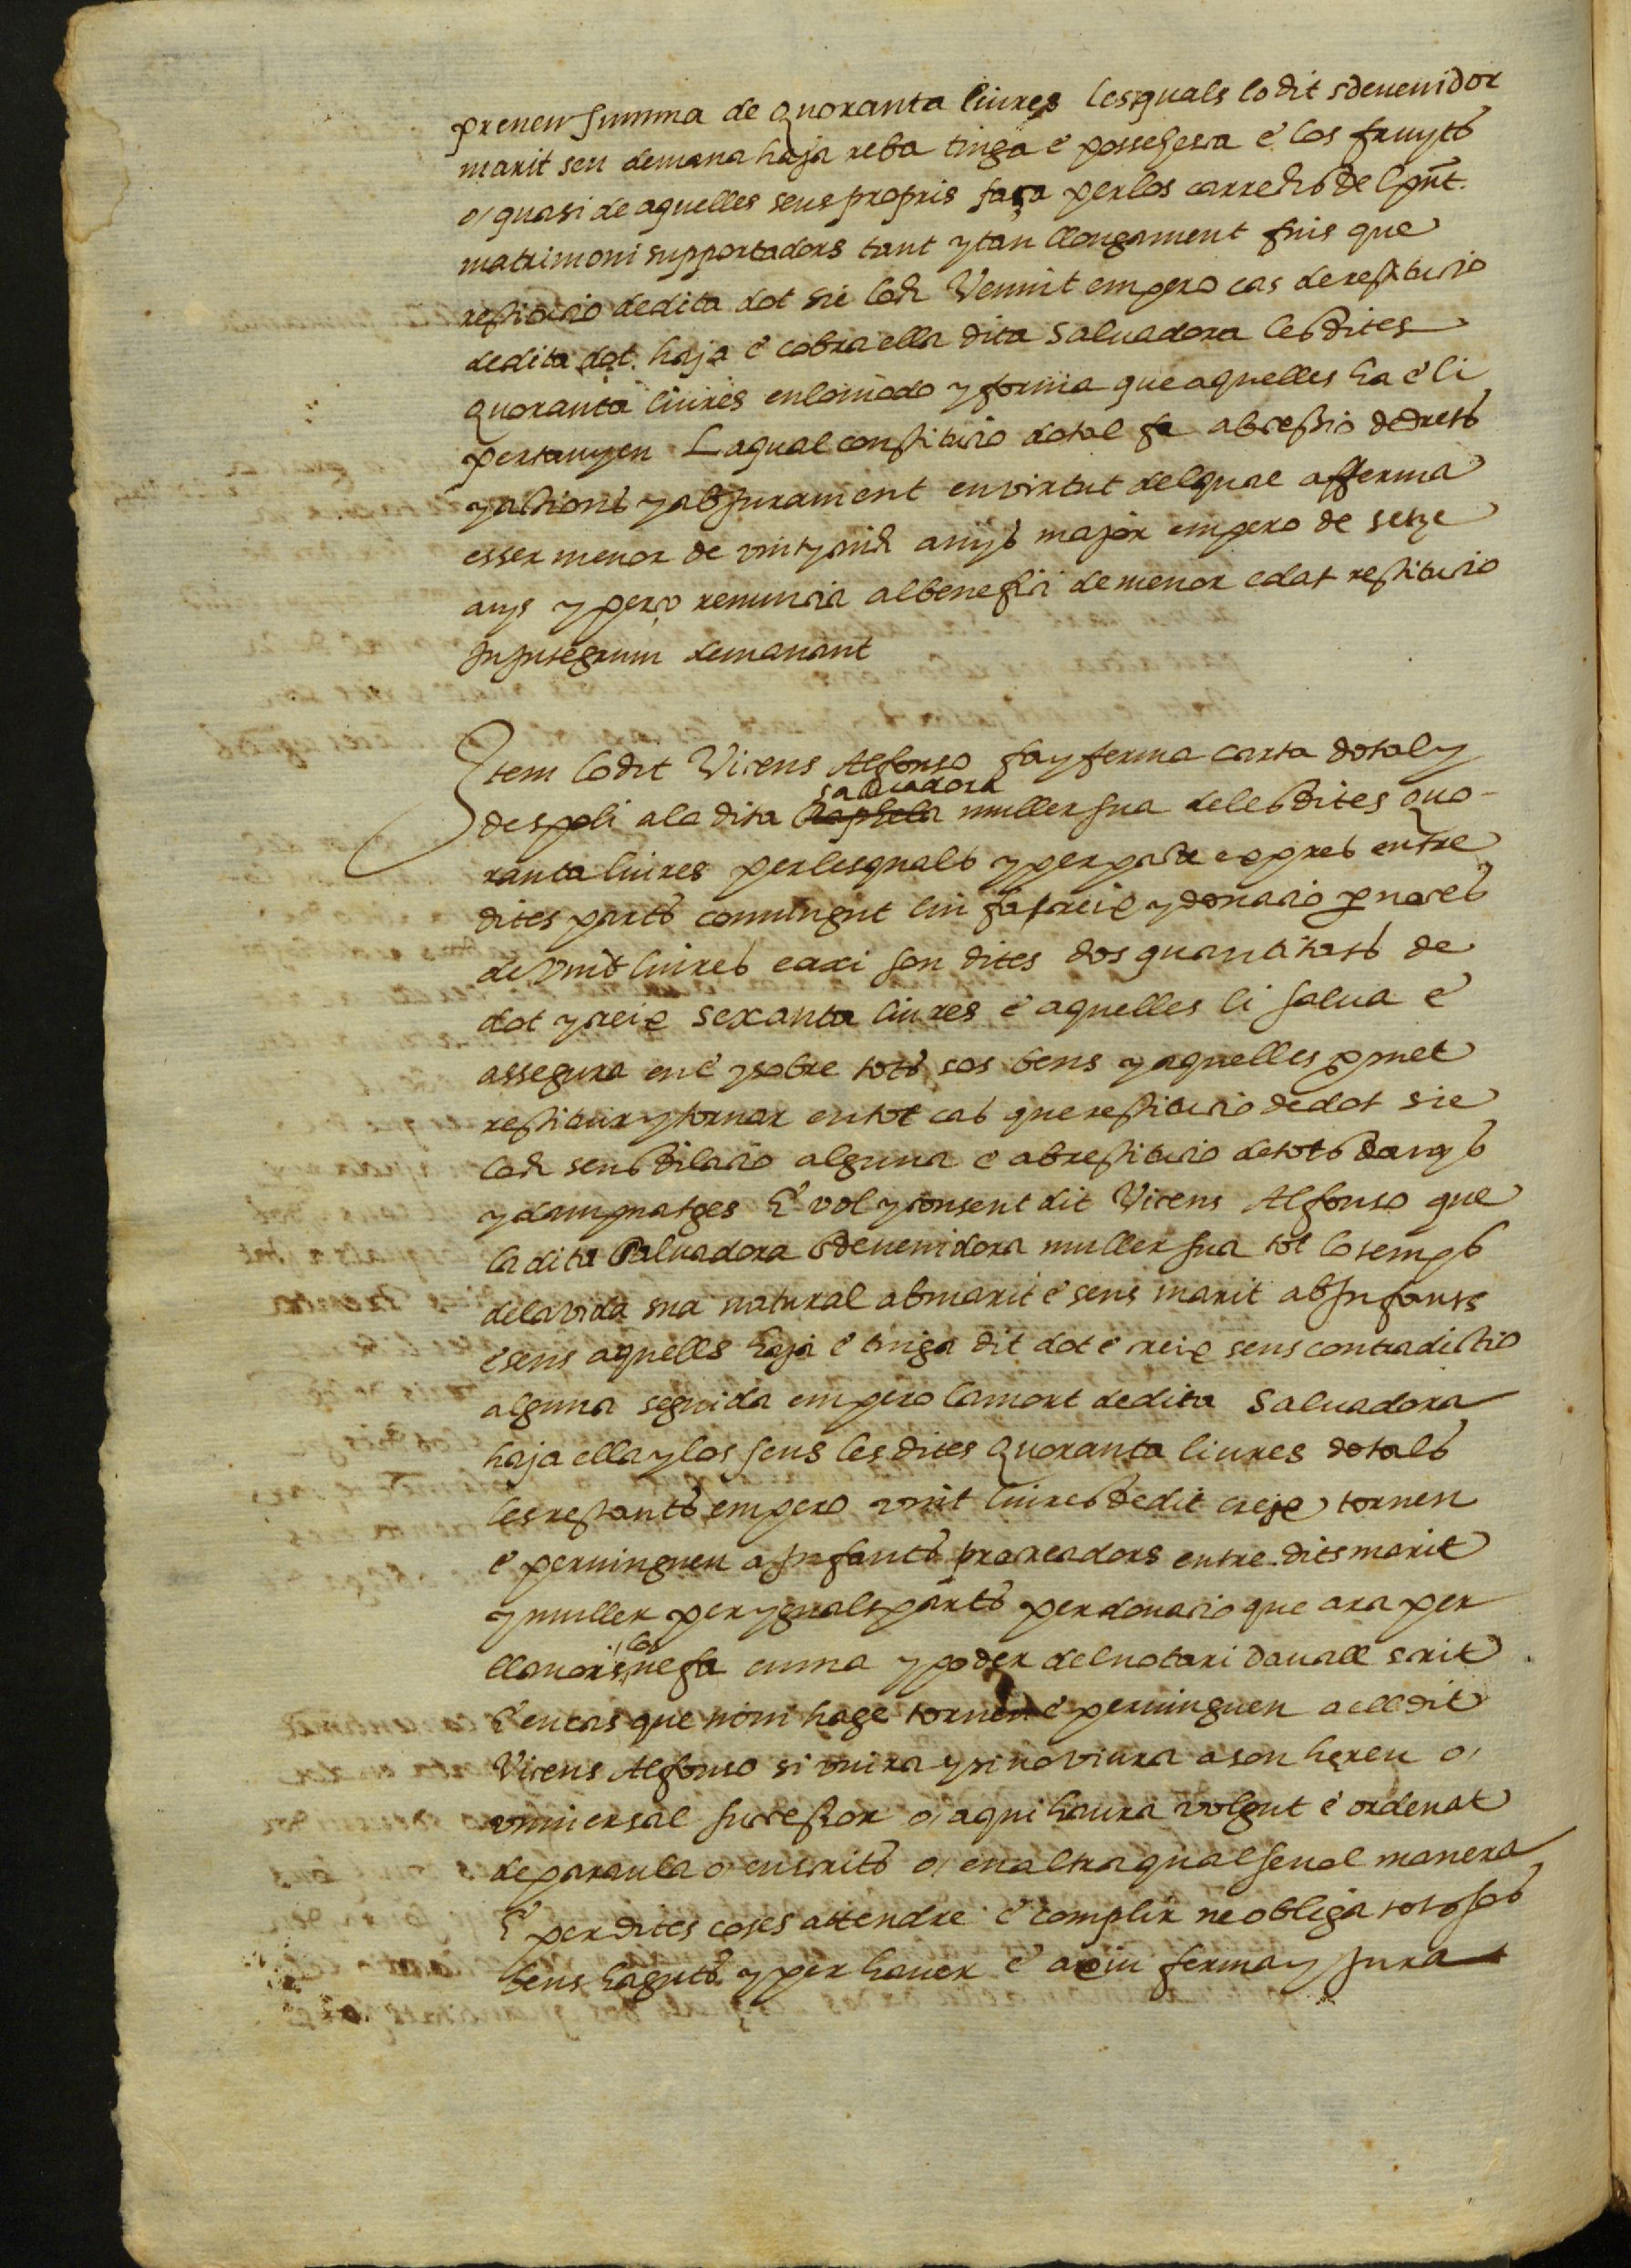 prenen summa de quoranta liures lesquals lo dit sdevenidor
marit seu demana haja reba tinga e possehesca e los fruyts
o, quasi de aquelles seus propris faça per los carrechs del pñt
matrimoni supportadors tant y tan llongament fins que
restitucio de dita dot sie loch Vennit empero cas de restitucio
de dita dot haja e cobra ella dita Saluadora les dites
quoranta liures en lo modo y forma que aquelles ha e li
pertanyen Laqual constitucio dotal fa ab cessio de drets
y actions y ab jurament en virtut del qual afferma
esser menor de vint y sinch anys major empero de setze
anys y perço renuncia al benefici de menor edat restitucio
In Integrum demanant
Item lo dit Vicens Alfonso fa y ferma carta dotal y
despoli a la dita
saluadora
Raphela muller sua de les dites quo-
ranta liures per les quals y per pacte expres entre
dites parts convingut lin fa screix y donacio p noces
de vint liures e axi son dites dos quantitats de
dot y screix sexanta liures e aquelles li salua e
assegura en e y sobre tots sos bens y aquelles pmet
restituir y tornar en tot cas que restitucio de dot sie
loch sens dilacio alguna e ab restitucio de tots danys
y dampnatges E vol y consent dit Vicens Alfonso que
la dita Saluadora sdevenidora muller sua tot lo temps
de la vida sua natural ab marit e sens marit ab Infants
e sens aquells haja e tinga dit dot e screix sens contradictio
alguna seguida empero la mort de dita Saluadora
haja ella y los seus les dites quoranta liures dotals
les restants empero vint liures de dit creix tornen
e pervinguen a Infants procreadors entre dits marit
y muller per yguals parts per donacio que ara per
los
llavors ne fa en ma y poder del notari davall scrit
E en cas que noni hage tornen e pervinguen a ell dit
Vicens Alfonso si viura y si no viura a son hereu o,
universal successor o, a qui haura volgut e ordenat
de paraula o, en scrits o, en altra qualsevol manera
E per dites coses attendre e complir ne obliga tots sos
bens haguts y per haver e axiu ferma y jura